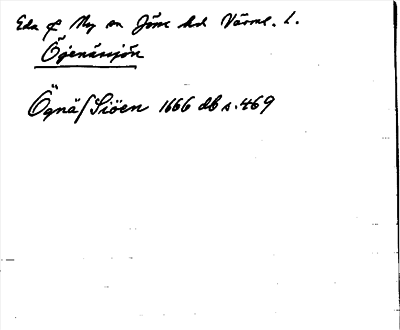 Eda sf Ny sn Jösse hd Värml. l.
Ögenässjön
Ögnäſ Siöen 1666 db s. 469